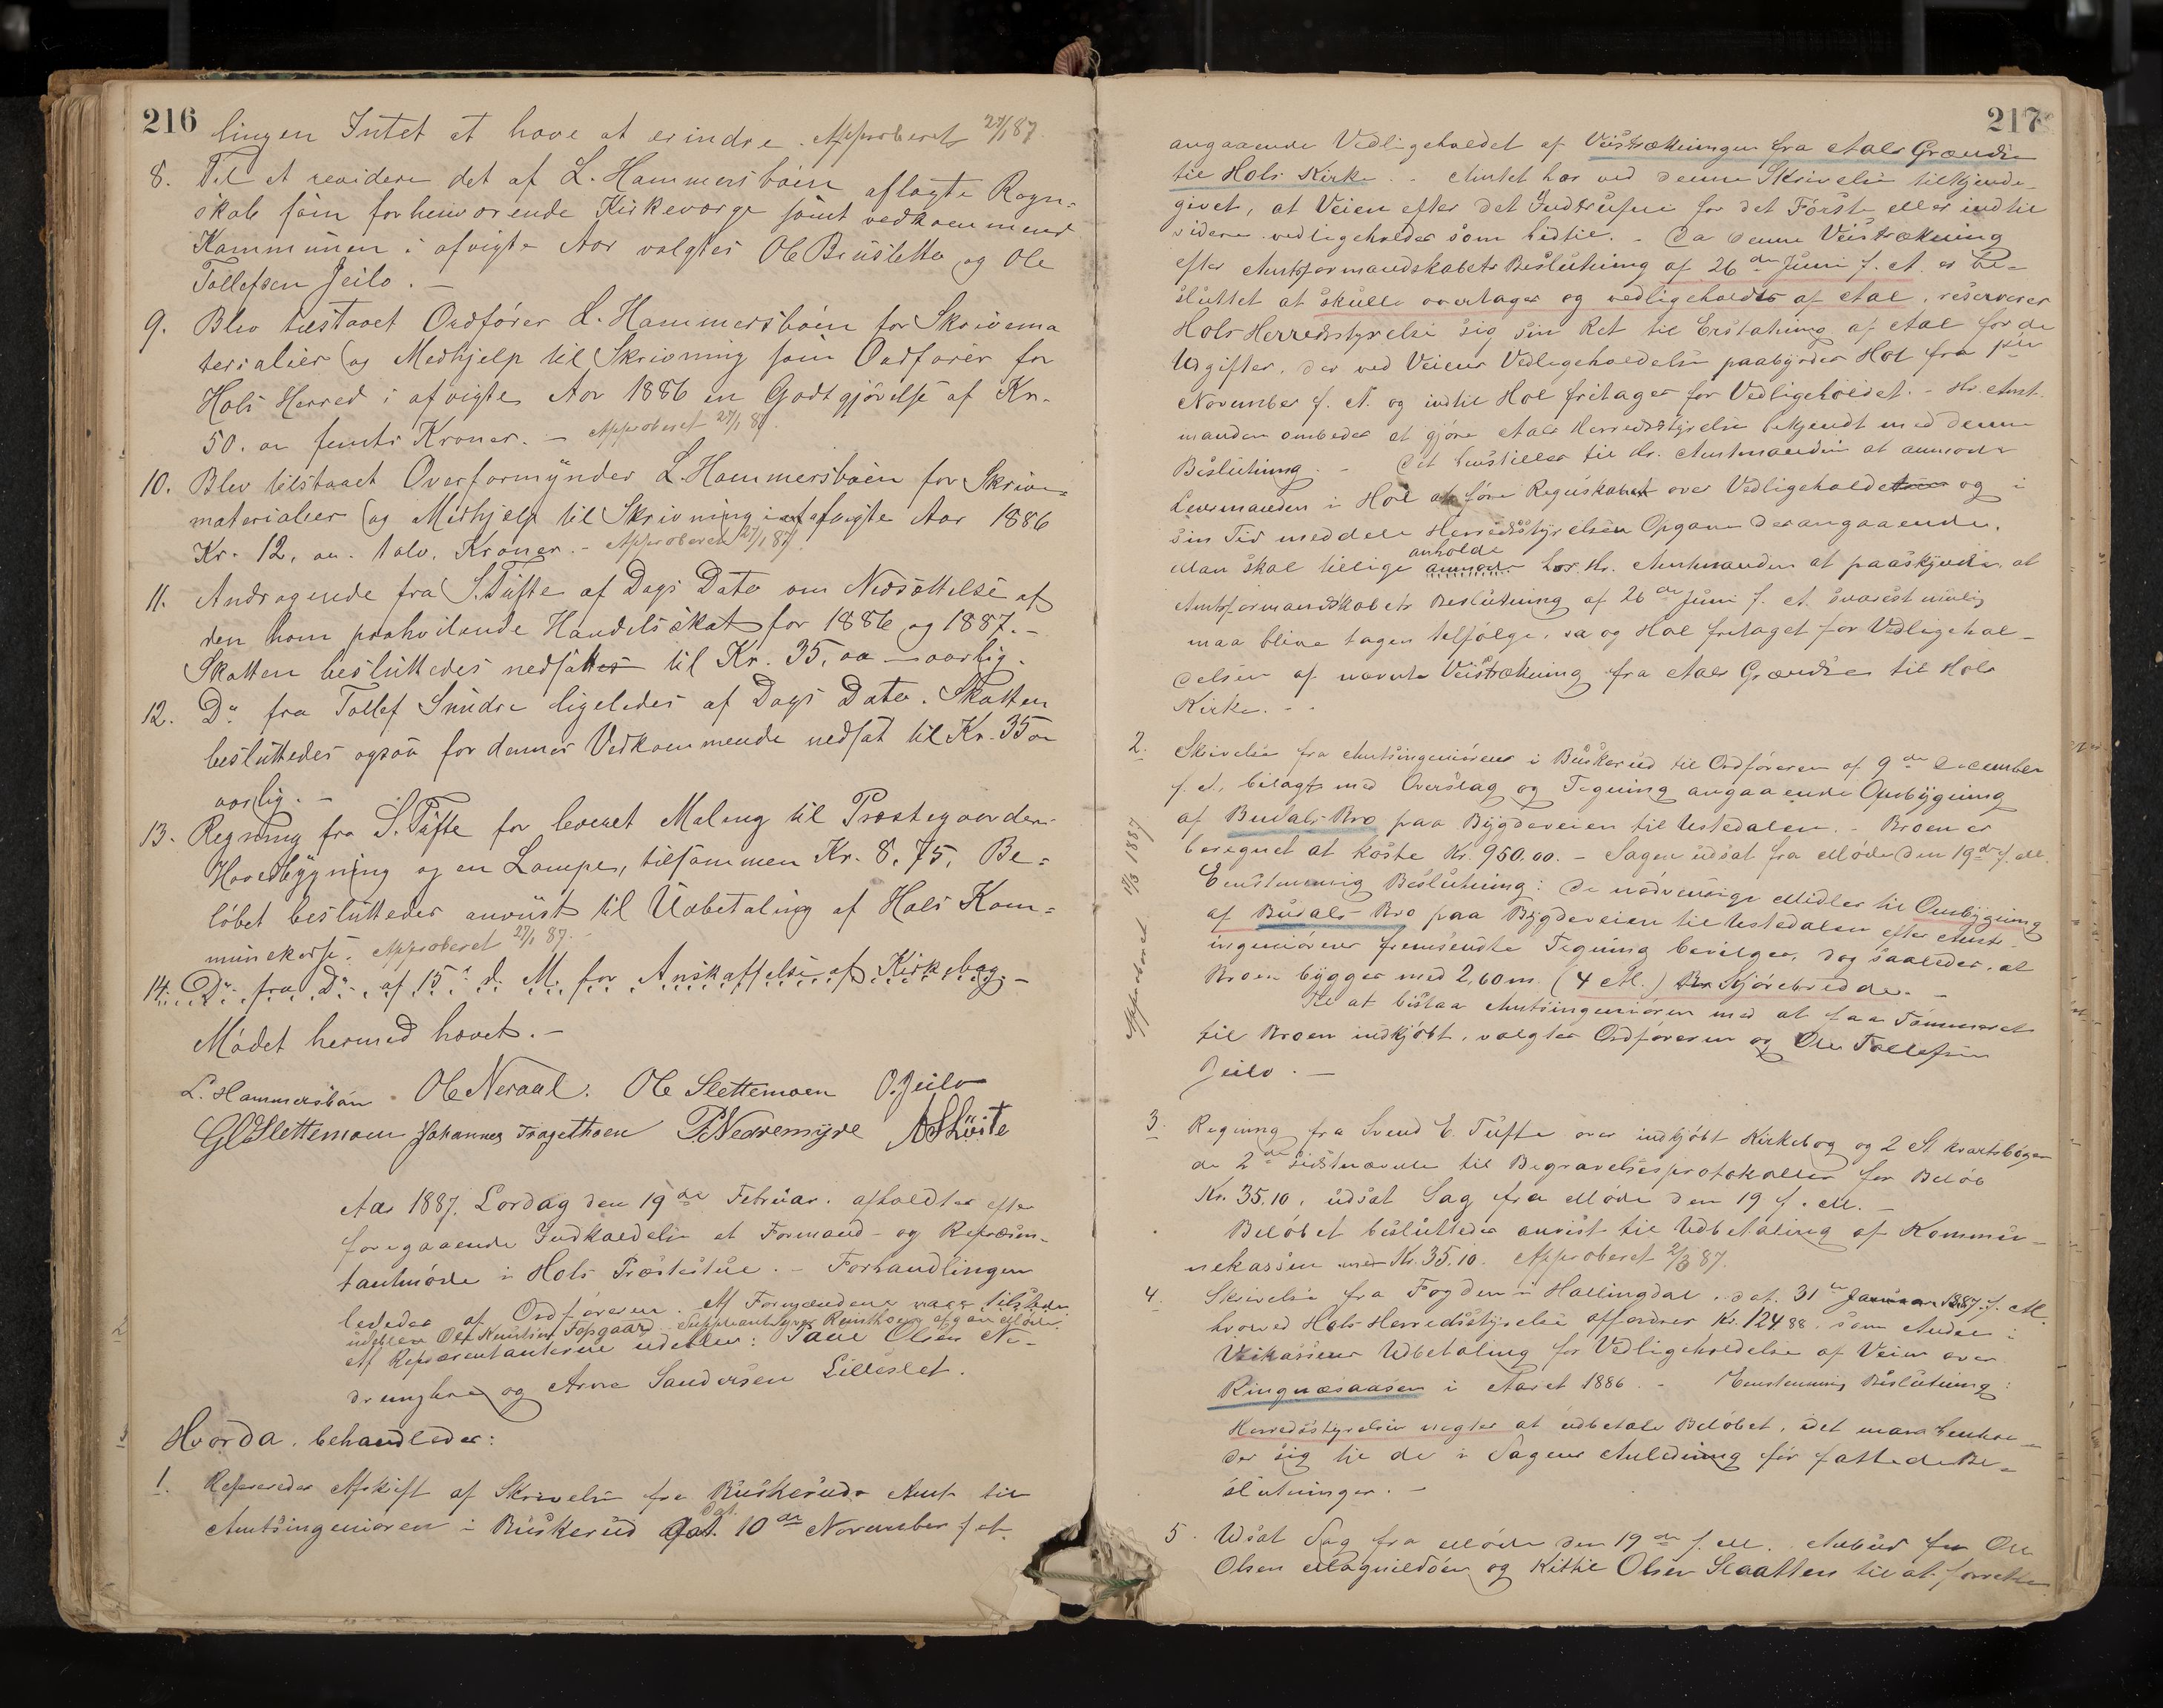 216
lingen Intet at have at erindre. Approberet 27/1 87.
8. Til at revidere det af L. Hammersbøen aflagte Regn-
skab som forhenværende Kirkeværge samt vedkommende
Kommunen i afvigte Aar valgtes Ole Bruslette og Ole
Tollefsen Jeilo. —
9. Blev tilstaaet Ordfører L. Hammersbøen for Skrivema
terialier og Medhjelp til Skrivning som Ordfører for
Hols Herred i afvigte Aar 1886 en Godtgjørelse af Kr.
50. oo femti Kroner. — Approberet 27/1 87.
10. Blev tilstaaet Overformynder L. Hammersbøen for Skrive-
materialier og Medhjelp til Skrivning i afvigte Aar 1886
Kr. 12, oo. tolv. Kroner. - Approberet 27/1 87.
11. Andragende fra S. Tufte af Dags Dato om Nedsættelse af
den ham paahvilende Handelsskat for 1886 og 1887. -
Skatten besluttedes nedsattes til Kr. 35, oo — aarlig.
12. Do fra Tollef Sundre ligeledes af Dags Dato. Skatten
besluttedes ogsaa for dennes Vedkommende nedsat til Kr. 35 oo
aarlig. -
13. Regning fra S. Tufte for leveret Maling til Præstegaarden-
Hovedbygning og en Lampe, tilsammen Kr. 8, 75, Be-
løbet besluttedes anvist til Udbetaling af Hols Kom-
munekasse. Approberet 27/1 87.
14. Do fra Do af 15. d. M. for Anskaffelse af Kirkebog. -
Mødet hermed hævet. -
L. Hammersbøen Ole Neraal. Ole Slettemoen O. Jeilo
Slettemoen Johannes Tragethoen P. Nedremyre
Aar 1887. Lørdag den 19de Februar. afholdtes efter
foregaaende Indkaldelse et Formand- og Repræsen-
tantmøde i Hols Præstestue. - Forhandlingen
lededes af Ordføreren. Af Formændene var tilstede
udeblev Ole Knutsen Tofsgaard
Af Repræsentanterne udeblev: Paul Olsen Ne-
dremyhre og Arne Sandersen Lilleslet.
Hvorda. behandledes:
1. Refereredes Afskrift af Skrivelse fra Buskeruds Amt til
dat.
Amtsingeniøren i Buskerud 10de November f. A.
217
angaaende Vedligeholdet af Veistrækningen fra Aals Grændse
til Hols Kirke. - Amtet har ved denne Skrivelse tilkjende-
givet, at Veien efter det Indtrufne for det Først eller indtil
videre vedligeholdes som hidtil. - Da denne Veistrækning
efter Amtsformandskabets Beslutning af 26de Juni f. A. er be-
sluttet at skulle overtages og vedligeholdes af Aal, reserverer
Hols Herredsstyrelse sig sin Ret til Erstatning af Aal for de
Udgifter, der ved Veiens Vedligeholdelse paabyrdes Hol fra 1ste
November f. A. og indtil Hol fritages for Vedligeholdet. - Hr. Amt-
manden ombedes at gjøre Aals Herredsstyrelse bekjendt med denne
Beslutning. - Det henstilles til Hr. Amtmanden at anmode
Lensmanden i Hol at føre Regnskabet over Vedligeholdet og i
sin Tid meddele Herredsstyrelsen Opgave derangaaende.
anholde
Man skal tillige anmode hos Hr. Amtmanden at paaskynde, at
Amtsformandskabets Beslutning af 26de Juni f. A. snarest mulig
maa blive tagen tilfølge, saa og Hol fritaget for Vedligehol-
delsen af nævnte Veistrækning fra Aals Grændse til Hols
Kirke. - -
2. Skrivelse fra Amtsingeniøren i Buskerud til Ordføreren af 9de December
f. A., bilagt med Overslag og Tegning angaaende Ombygning
af Budals Bro paa Bygdeveien til Ustedalen. - Broen er
beregnet at koste Kr. 950.00. - Sagen udsat fra Møde den 19de f. M.
Enstemmig Beslutning: De nødvendige Midler til Ombygning
af Budals Bro paa Bygdeveien til Ustedalen efter Amts-
ingeniørens fremsendte Tegning bevilges, dog saaledes, at
Broen bygges med 2,60 m. (4 Al.) Kjørebredde. -
Til at bistaa Amtsingeniøren med at faa Tømmeret
til Broen indkjøbt, valgtes Ordføreren og Ole Tollefsen
Jeilo. -
Approberet 2/3 1887
3. Regning fra Svend E. Tufte over indkjøbt Kirkebog og 2 St. kvartbøger
de 2de sidstnævnte til Begravelsesprotokoller for Beløb
Kr. 35.10, udsat Sag fra Møde den 19. f. M. -
Beløbet besluttedes anvist til Udbetaling af Kommu-
nekassen med Kr. 35.10. Approberet 2/3 87.
4. Skrivelse fra Fogden i Hallingdal. dat. 31te Januar 1887. f. M.
hvorved Hols Herredsstyrelse affordres Kr. 124 88. som Andel i
Veikassens Udbetaling for Vedligeholdelse af Veien over
Ringnæsaasen i Aaret 1886. - Enstemmig Beslutning:
Herredsstyrelsen negter at udbetale Beløbet, idet man henhol-
der sig til de i Sagens Anledning før fattede Be-
slutninger. -
5. Udsat Sag fra Møde den 19de f. M. Anbud fra Ole
Olsen Magnildøen og Kittil Olsen Slaatten til at forrette